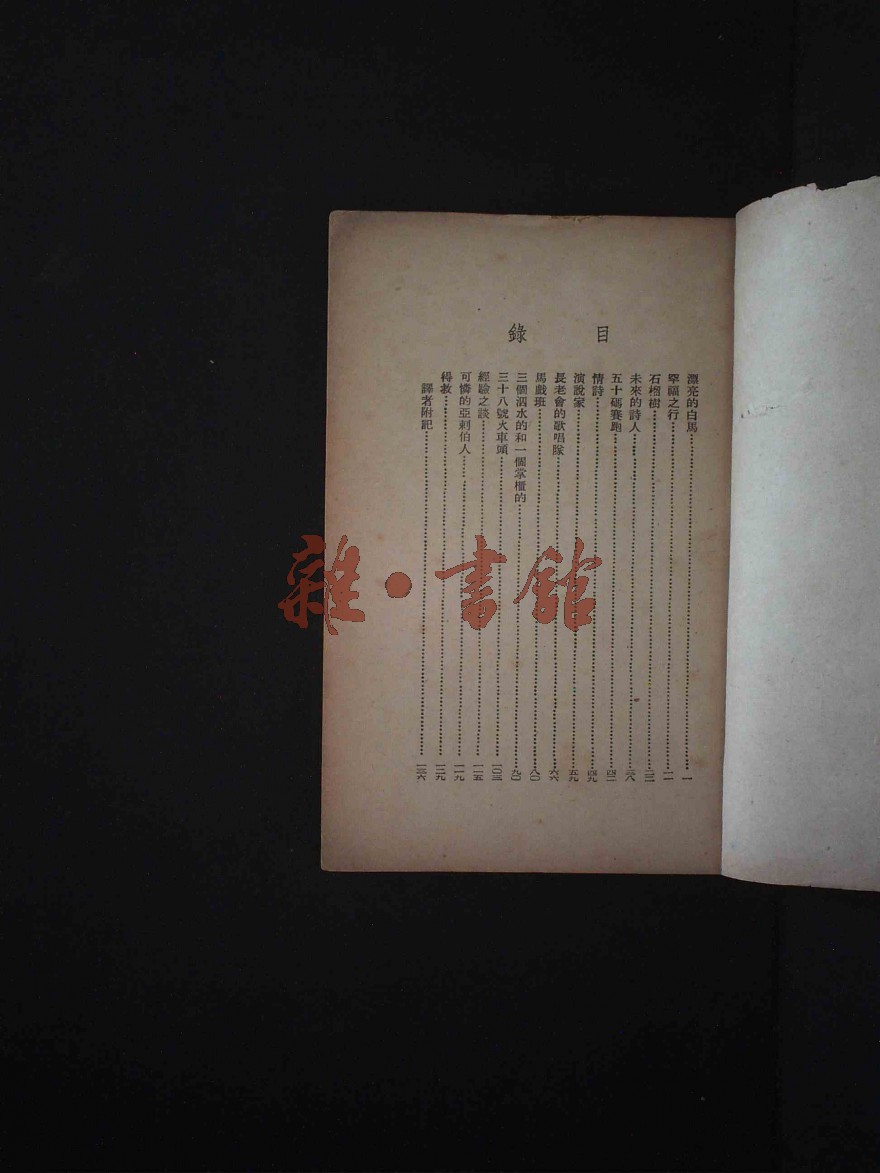 目錄
漂亮的白馬……一
罕福之行……一一
石榴樹……二二
未來的詩人……三八
五十碼賽跑……四二
情詩……四九
演說家……五九
長老會的歌唱隊……六六
馬戲班……八〇
三個泅水的和一個掌櫃的……九〇
三十八號火車頭……一〇三
經驗之談……一一五
可憐的亞剌伯人……一一九
得救……一二九
譯者附記……一三六
雜·書館